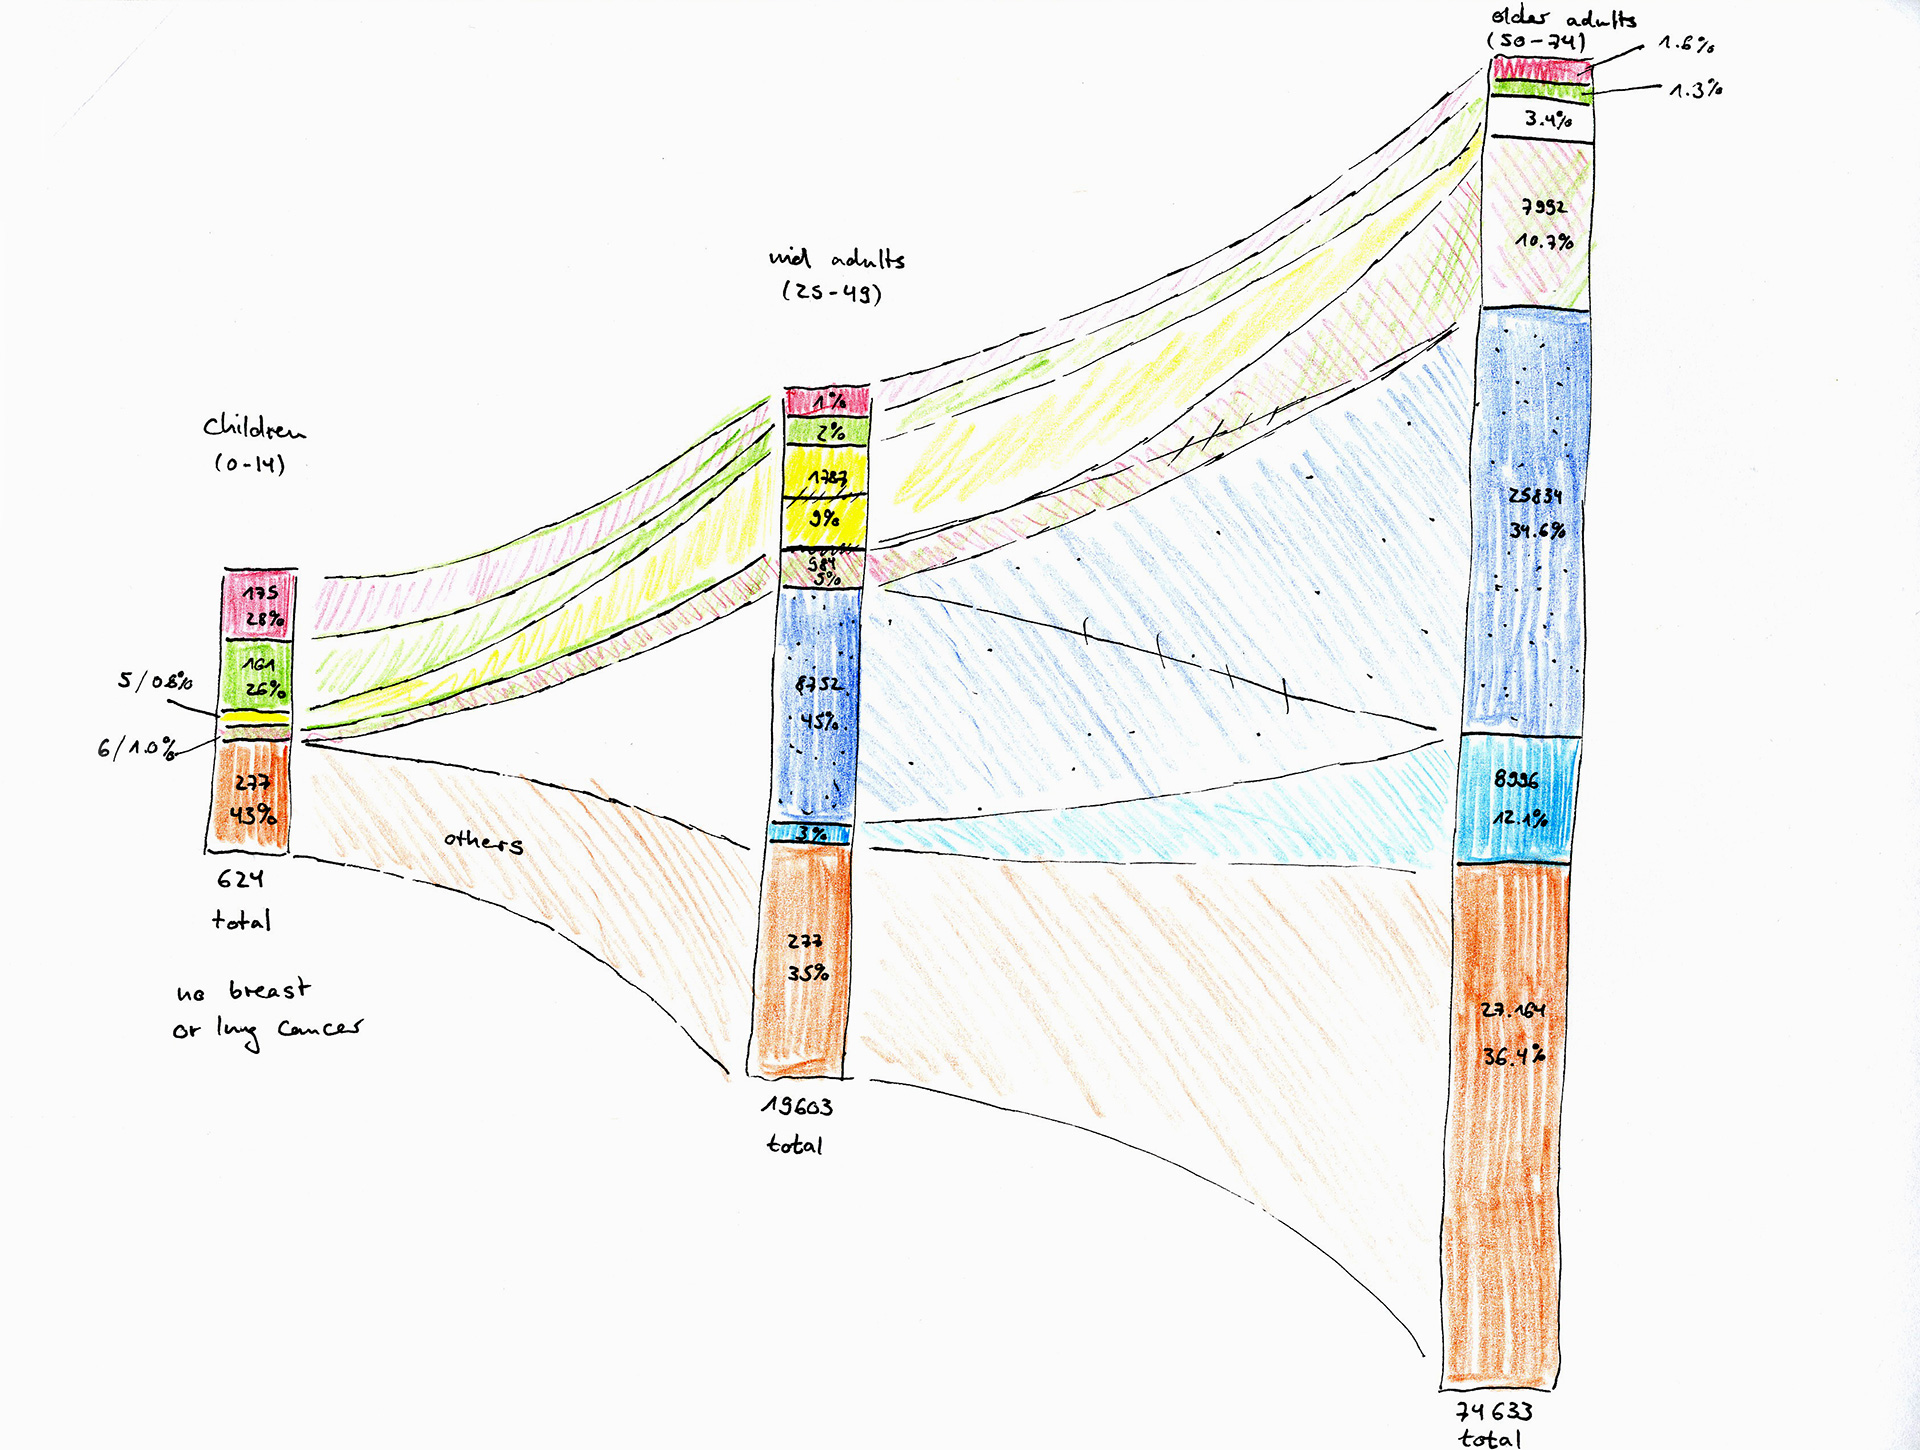 children
(0-14)
175
28%
161
26%
5/0.8%
6/1.0%
277
43%
624
total
no breast
or lung cancer
others
mid adults
(25-49)
1%
2%
1787
9%
984
5%
8752
45%
3%
277
35%
19603
total
older adults
(50-74)
1.6%
1.3%
3.4%
7992
10.7%
25834
34.6%
8996
12.1%
27.164
36.4%
74633
total